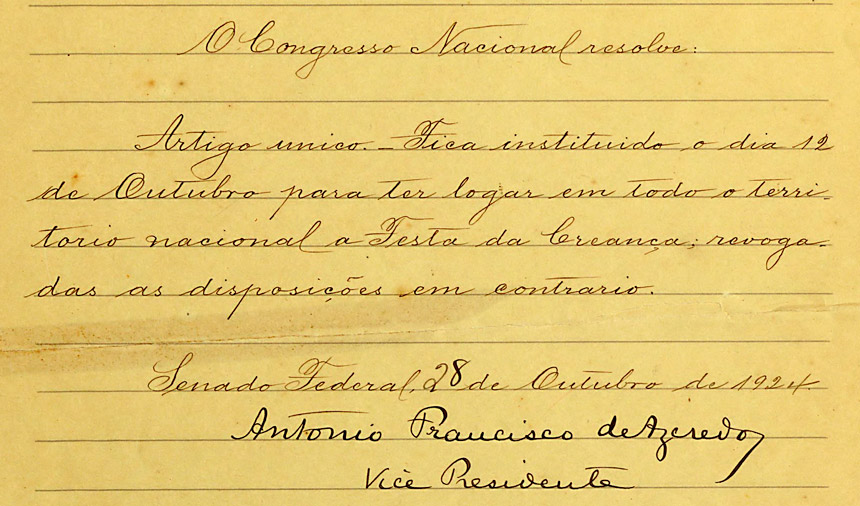 O Congresso Nacional resolve:
Artigo unico. _ Fica instituido o dia 12
de Outubro para ter logar em todo o terri-
torio nacional a Festa da Creança; revoga-
das as disposições em contrario.
Senado Federal, 28 de Outubro de 1924.
Antonio Francisco de Azeredo
Vice Presidente